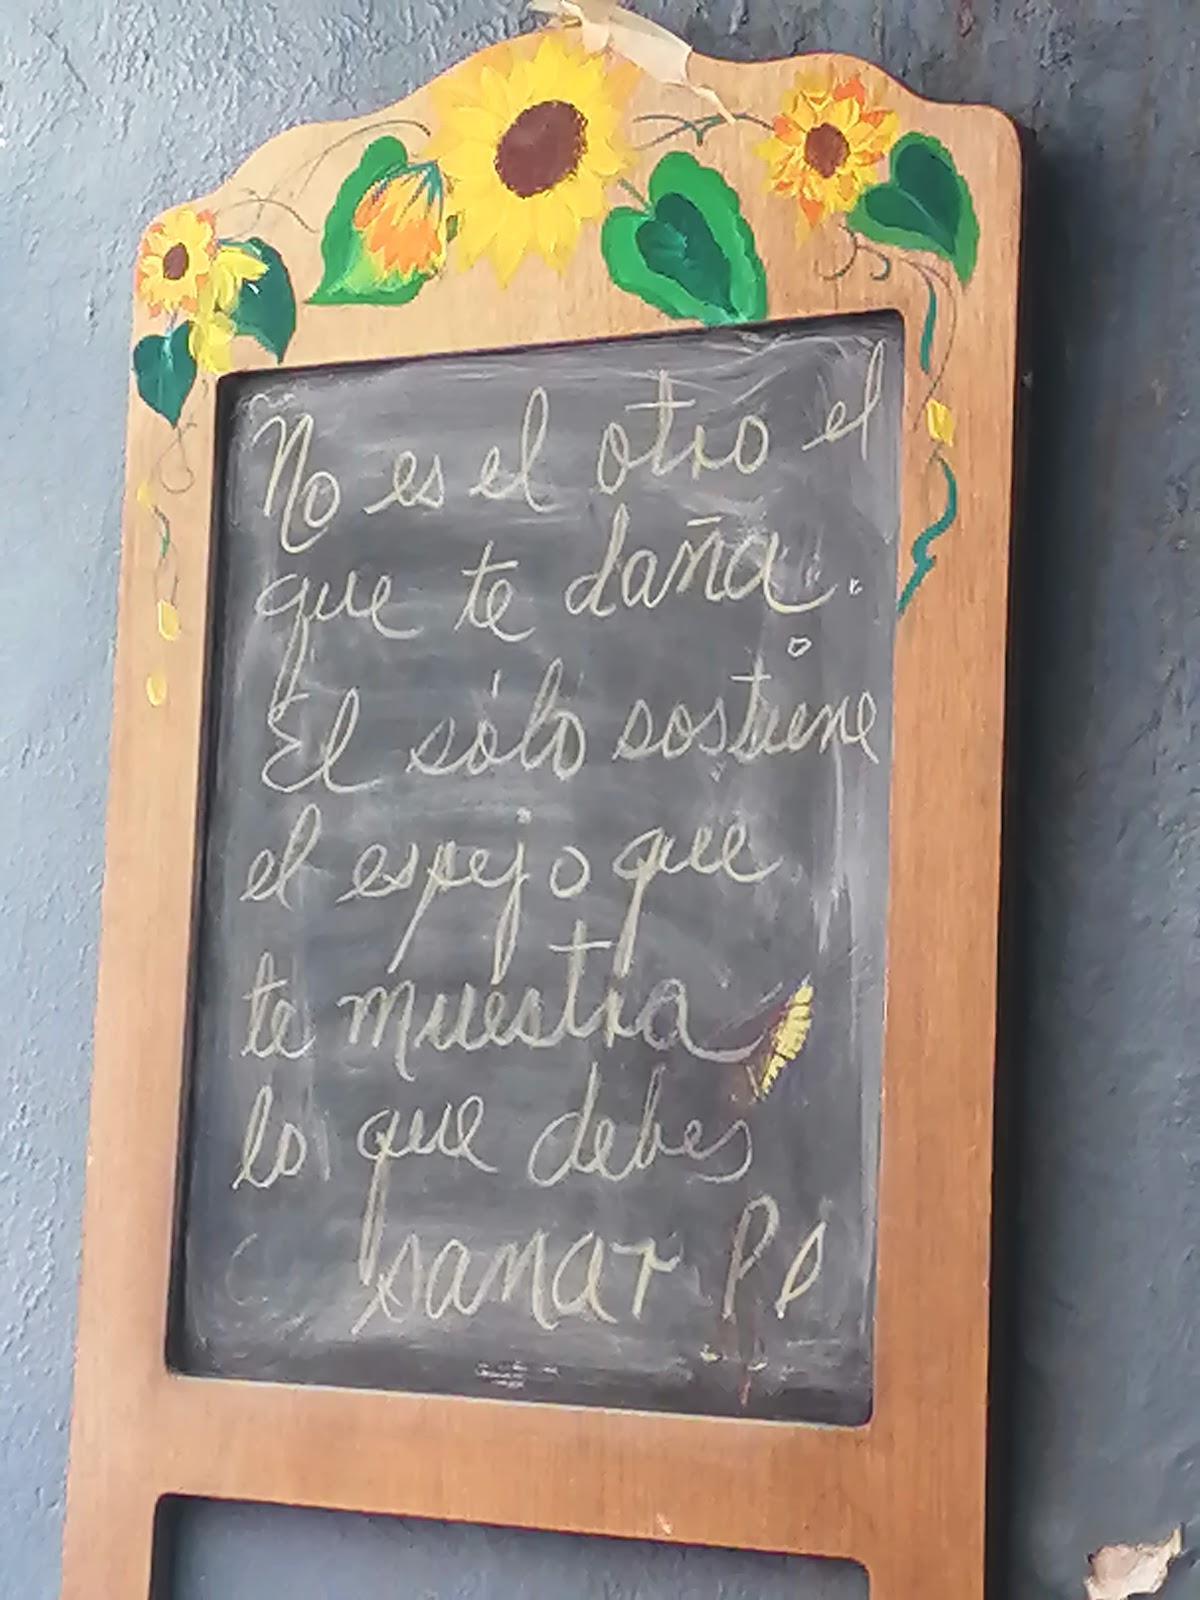 No es el otro el
que te daña.
El sólo sostiene
el espejo que
te muestra
lo que debes
sanar